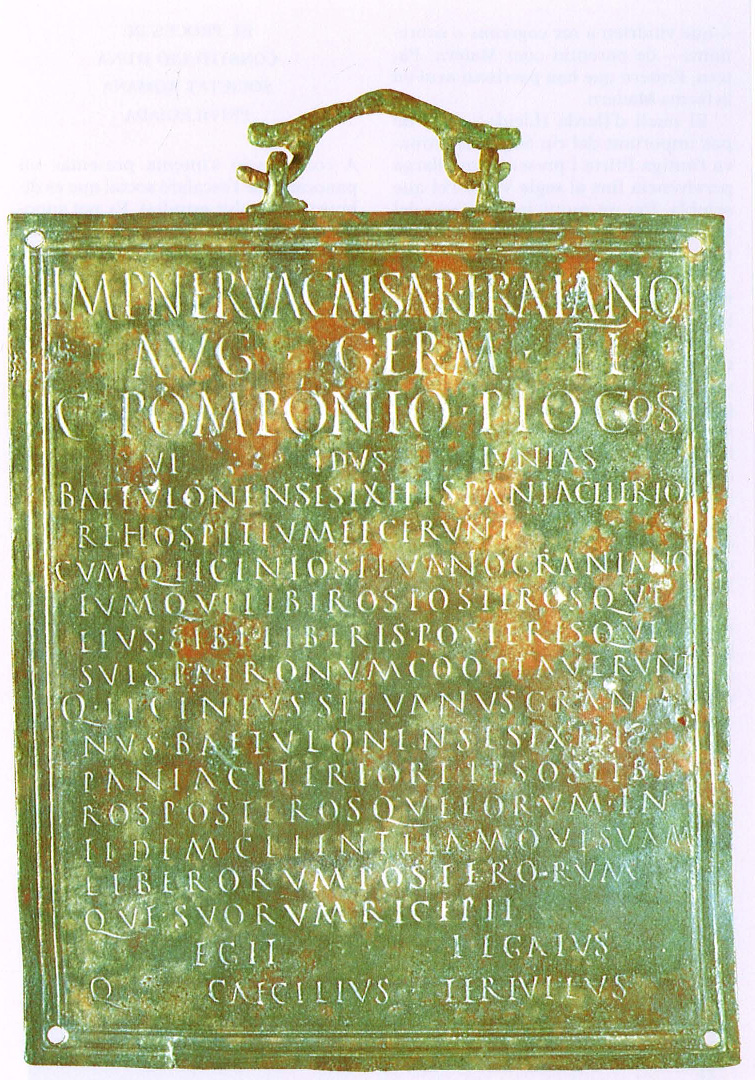 IMP NERVA CAESARE TRAIANO
AVG · GERM · II
C POMPONIO · PIO COS
VI IDVS IVNIAS
BAETVLONENSES EX HISPANIA CITERIO
RE HOSPITIVM FECERVNT
CVM Q LICINIO SILVANO GRANIANO
EVMQVE LIBEROS POSTEROSQVE
EIVS · SIBI · LIBERIS · POSTERISQVE
SVIS PATRONVM COOPTAVERVNT
Q · LICINIVS SILVANVS GRANIA
NVS · BAETVLONENSES EX HIS
PANIA CITERIORE IPSOS LIBE
ROS POSTEROSQVE EORVM · IN
FIDEM CLIENTELAMQVE SVAM
LIBERORVM POSTERO-RVM
QVE · SVORVM RECEPIT
EGIT LEGATVS
Q CAECILIVS TERTVLLVS